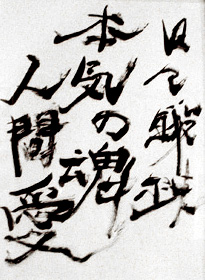 日々戦
本気の魂
人間愛